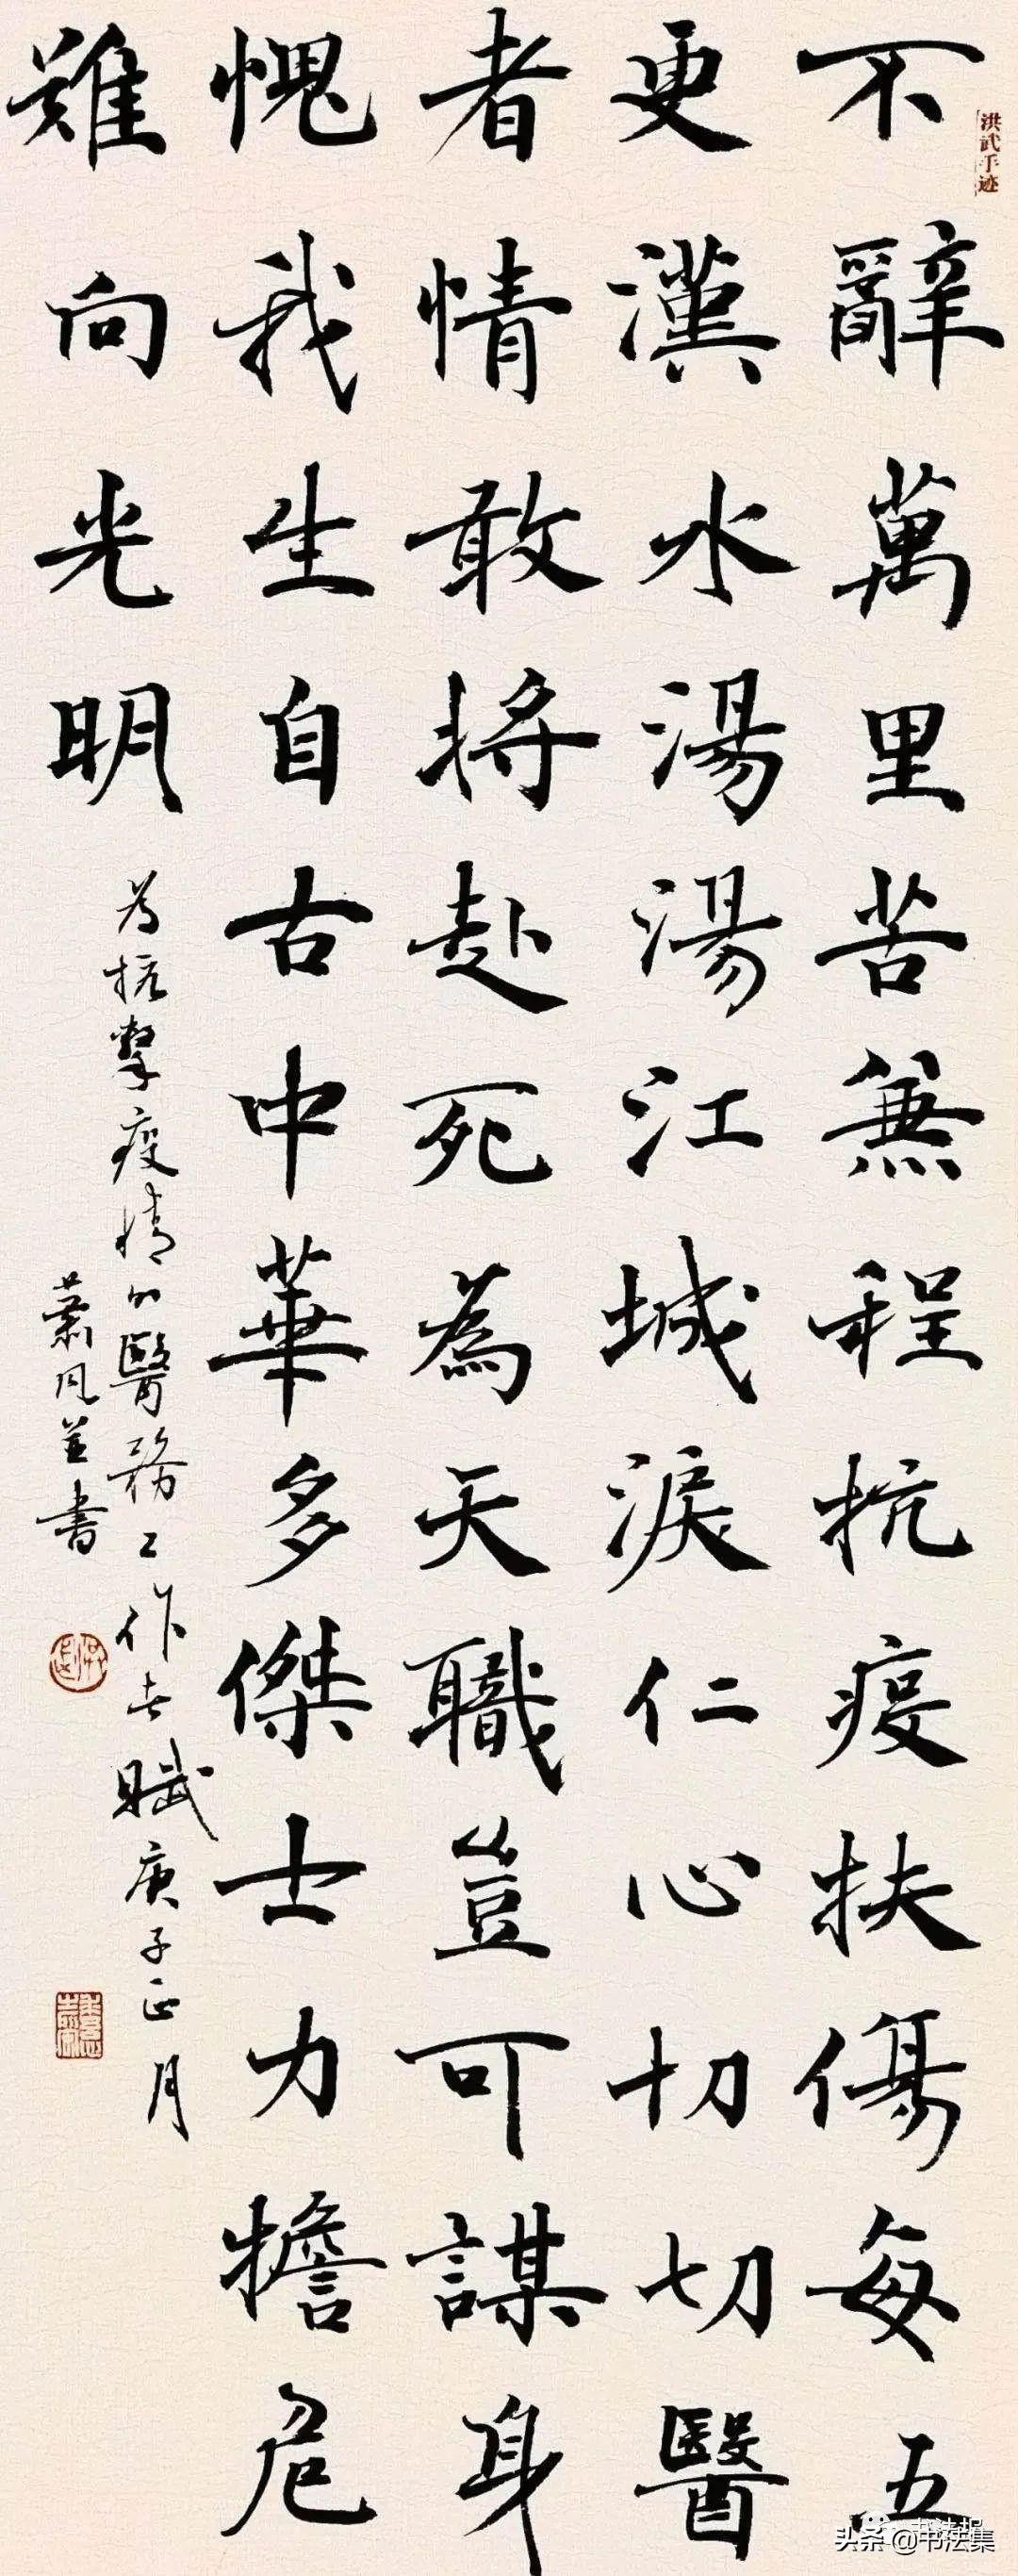 洪武手迹
不辭萬里苦兼程抗疫扶傷每五
更漢水湯湯江城淚仁心切切醫
者情敢將赴死為天職豈可謀身
愧我生自古中華多傑士力擔危
難向光明
為抗擊疫情的醫務工作者賦庚子正月
蕭風并書
头条 @书法集